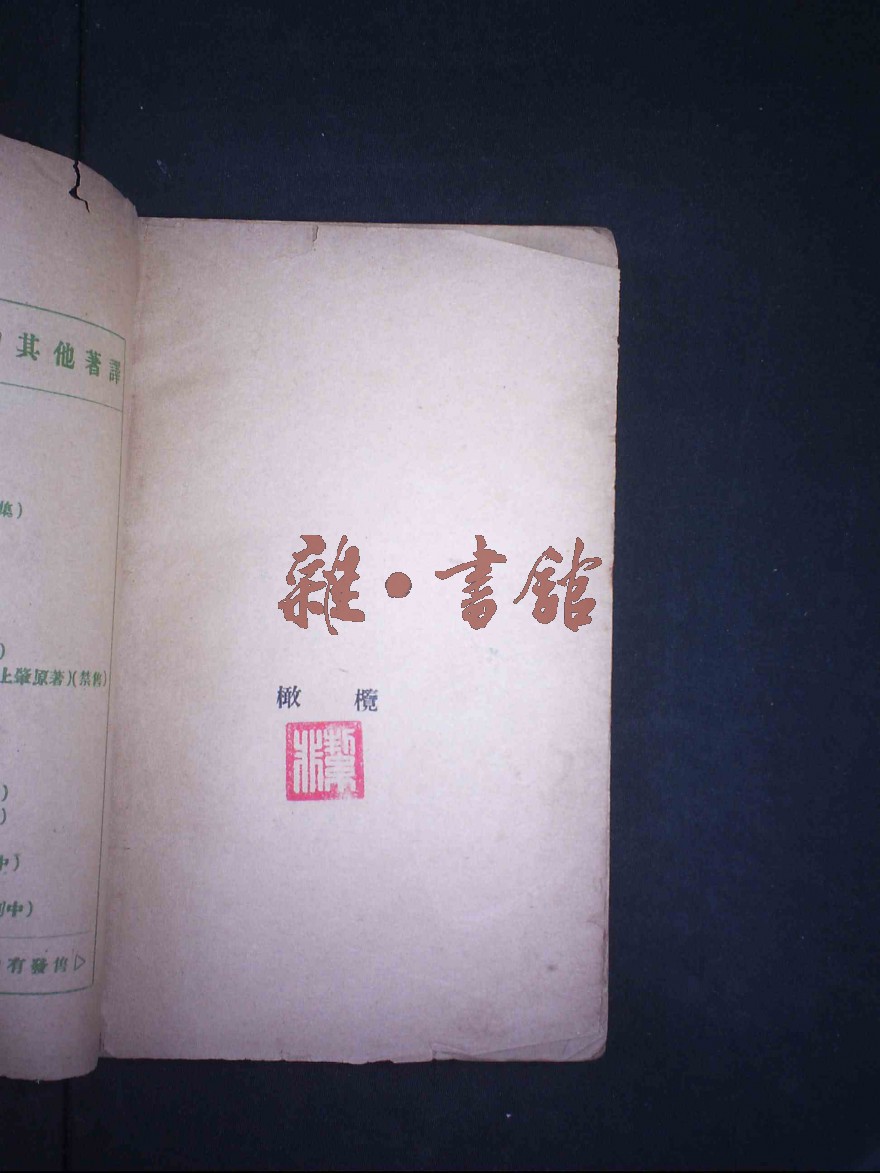 其他著譯
集)
)
上肇原著)(禁售)
)
)
中)
刷中)
有發售▷
雜·書館
橄欖